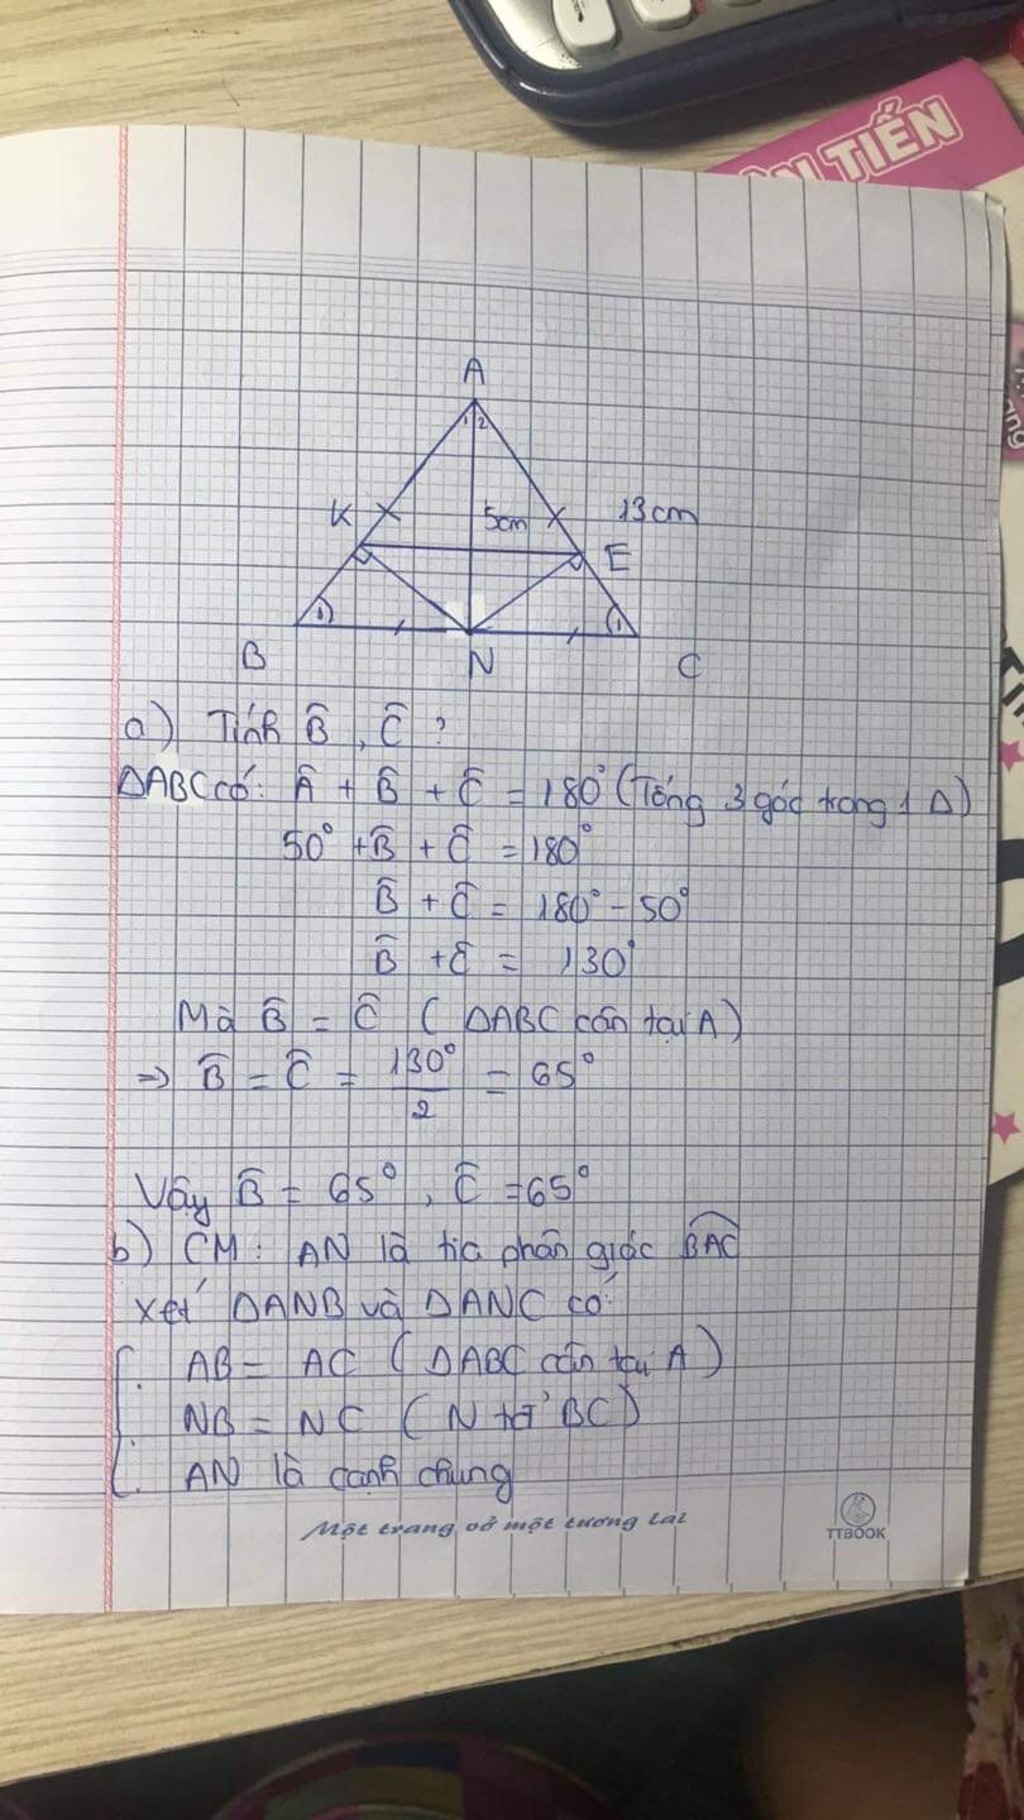 ÂN TIẾN
A
1 2
K
5cm
13cm
E
1
1
B
N
C
a) Tính B̂, Ĉ ?
ΔABC có: Â + B̂ + Ĉ = 180° (Tổng 3 góc trong 1 Δ)
50° + B̂ + Ĉ = 180°
B̂ + Ĉ = 180° - 50°
B̂ + Ĉ = 130°
Mà B̂ = Ĉ ( ΔABC cân tại A )
=> B̂ = Ĉ = 130°/2 = 65°
Vậy B̂ = 65°, Ĉ = 65°
b) CM: AN là tia phân giác B̂AC
Xét ΔANB và ΔANC có:
AB = AC ( ΔABC cân tại A )
NB = NC ( N tđ BC )
AN là cạnh chung
Một trang vở một tương lai
TTBOOK